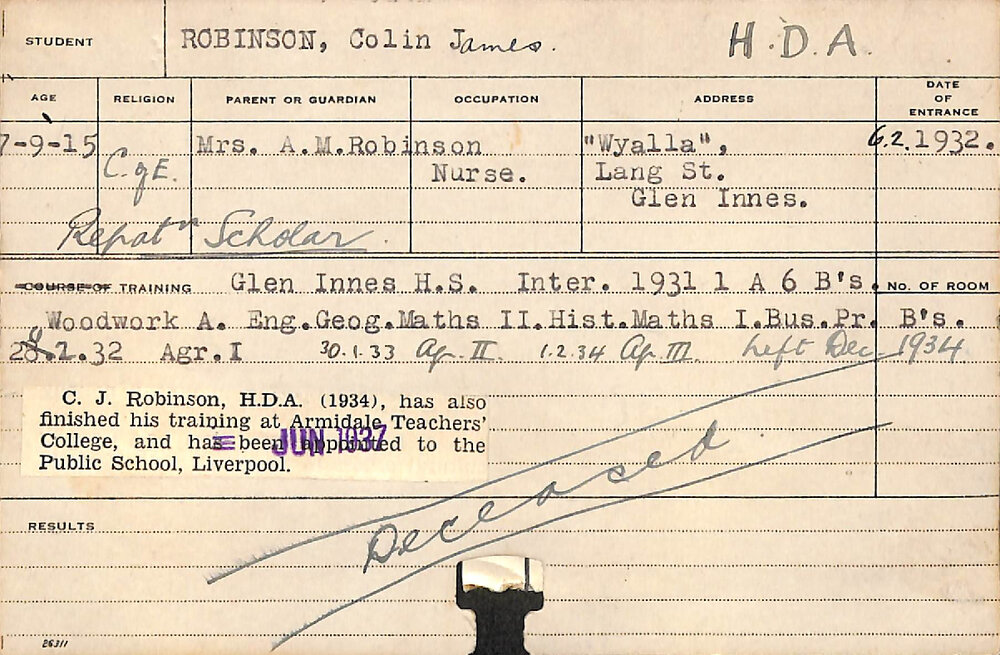 STUDENT ROBINSON, Colin James. H.D.A.
AGE RELIGION PARENT OR GUARDIAN OCCUPATION ADDRESS DATE OF ENTRANCE
7-9-15 C. of E. Mrs. A.M.Robinson "Wyalla", 6.2.1932.
Nurse. Lang St.
Glen Innes.
Repatn Scholar
COURSE OF TRAINING Glen Innes H.S. Inter. 1931 1 A 6 B's. No. OF ROOM
Woodwork A. Eng.Geog.Maths II.Hist.Maths I.Bus.Pr. B's.
.32 Agr.I 30.1.33 Ag. II. 1.2.34 Ag. III. Left Dec. 1934
C. J. Robinson, H.D.A. (1934), has also
finished his training at Armidale Teachers'
College, and has been appointed to the
Public School, Liverpool.
JUN 1937
Deceased
RESULTS
26311